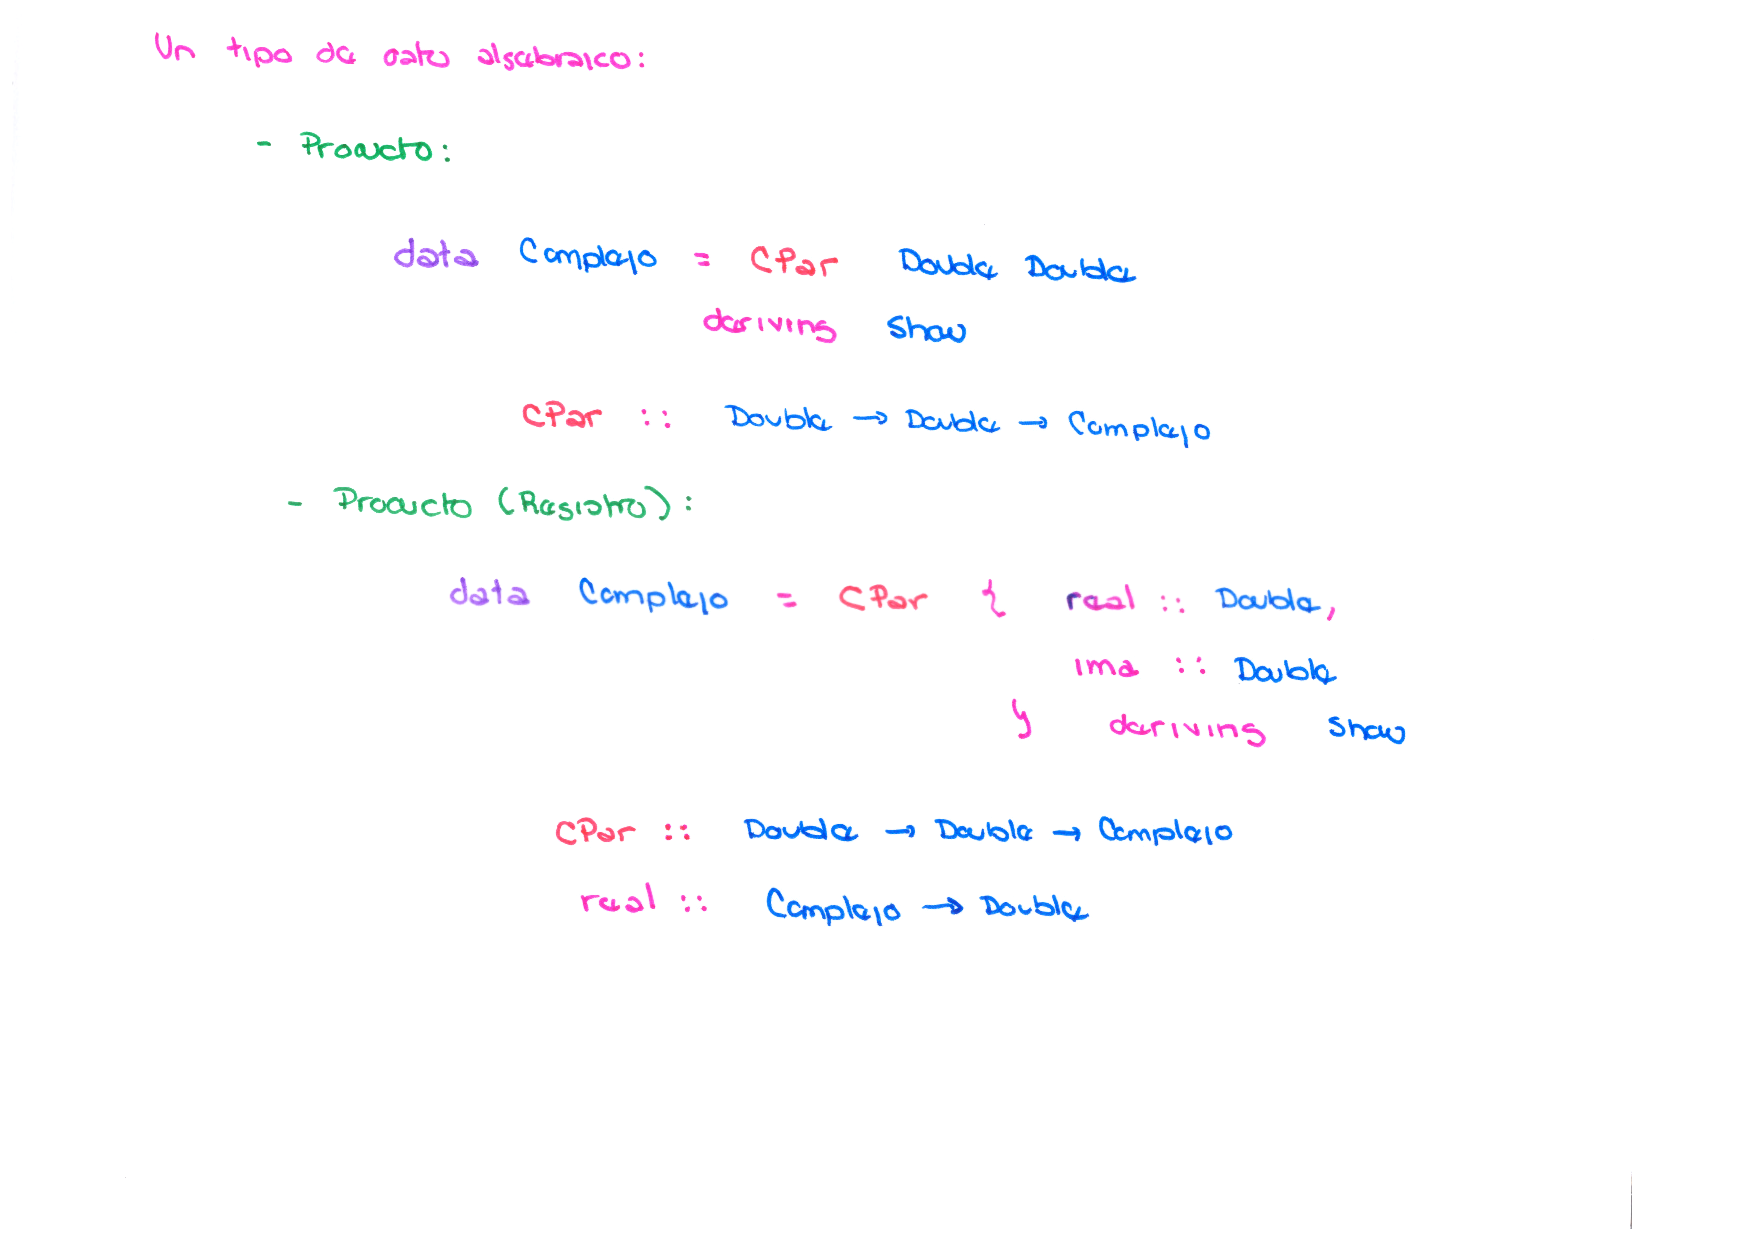 Un tipo de dato algebraico:
- Producto:
data Complejo = CPar Double Double
deriving Show
CPar :: Double → Double → Complejo
- Producto (Registro):
data Complejo = CPar { real :: Double,
ima :: Double
} deriving Show
CPar :: Double → Double → Complejo
real :: Complejo → Double